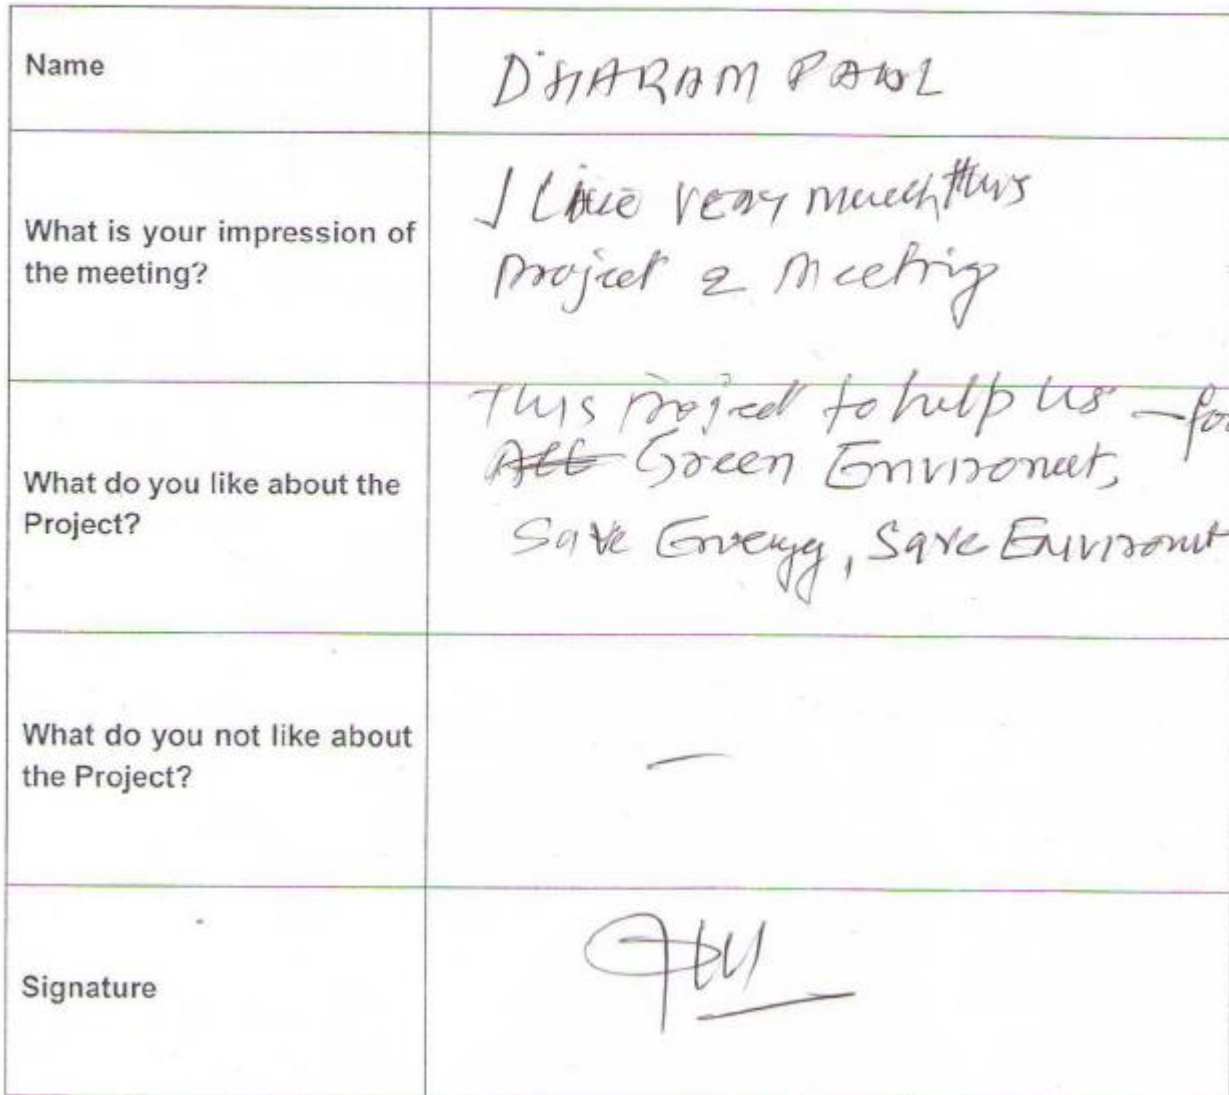 Name
DHARAM PAUL
What is your impression of
the meeting?
I like very much this
project & meeting
What do you like about the
Project?
This project to help us - for
Green Environmet,
Save Energy, Save Environmt
What do you not like about
the Project?
—
Signature